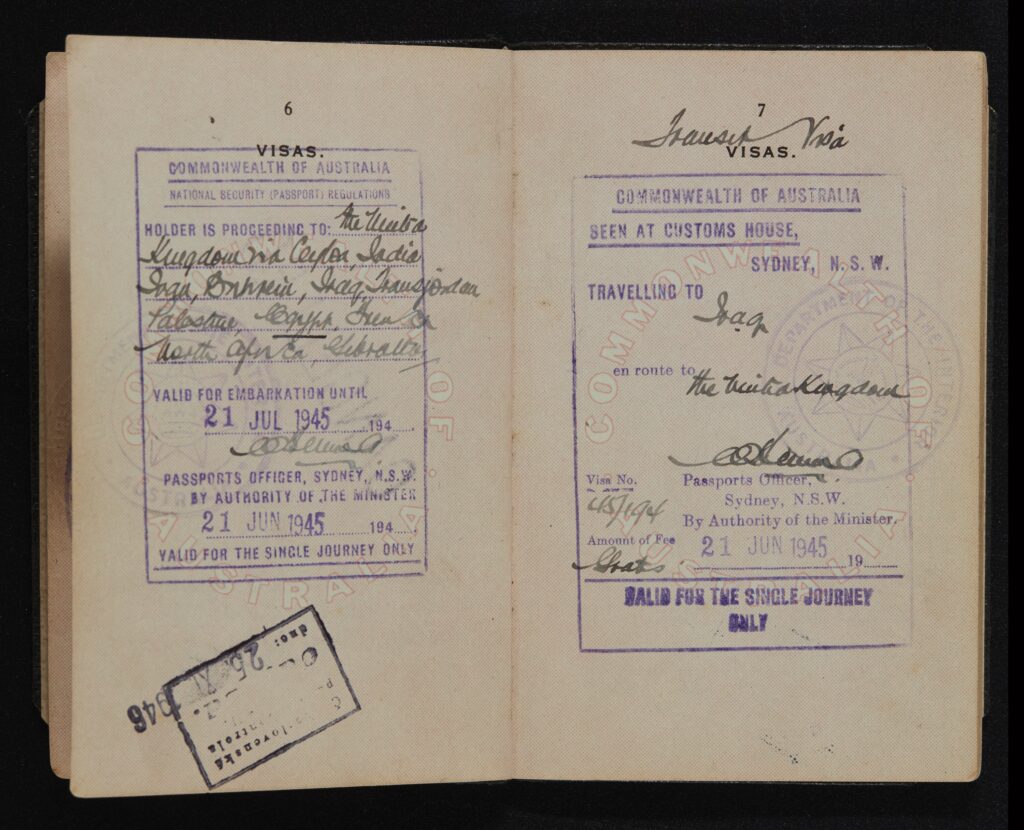 6
VISAS.
COMMONWEALTH OF AUSTRALIA
NATIONAL SECURITY (PASSPORT) REGULATIONS
HOLDER IS PROCEEDING TO: the United
Kingdom via Ceylon, India
Iran, Bahrein, Iraq, Transjordan
Palestine, Egypt, French
North Africa, Gibraltar
VALID FOR EMBARKATION UNTIL
21 JUL 1945 194
PASSPORTS OFFICER, SYDNEY, N.S.W.
BY AUTHORITY OF THE MINISTER
21 JUN 1945 194
VALID FOR THE SINGLE JOURNEY ONLY
COMMONWEALTH OF AUSTRALIA
dne: 25. XI. 1946
7
Transit Visa
VISAS.
COMMONWEALTH OF AUSTRALIA
SEEN AT CUSTOMS HOUSE,
SYDNEY, N. S. W.
TRAVELLING TO
Iraq
en route to the United Kingdom
Visa No. Passports Officer,
45/194 Sydney, N.S.W.
By Authority of the Minister.
Amount of Fee 21 JUN 1945 19
Gratis
VALID FOR THE SINGLE JOURNEY
ONLY
COMMONWEALTH OF AUSTRALIA
DEPARTMENT OF THE INTERIOR
AUSTRALIA